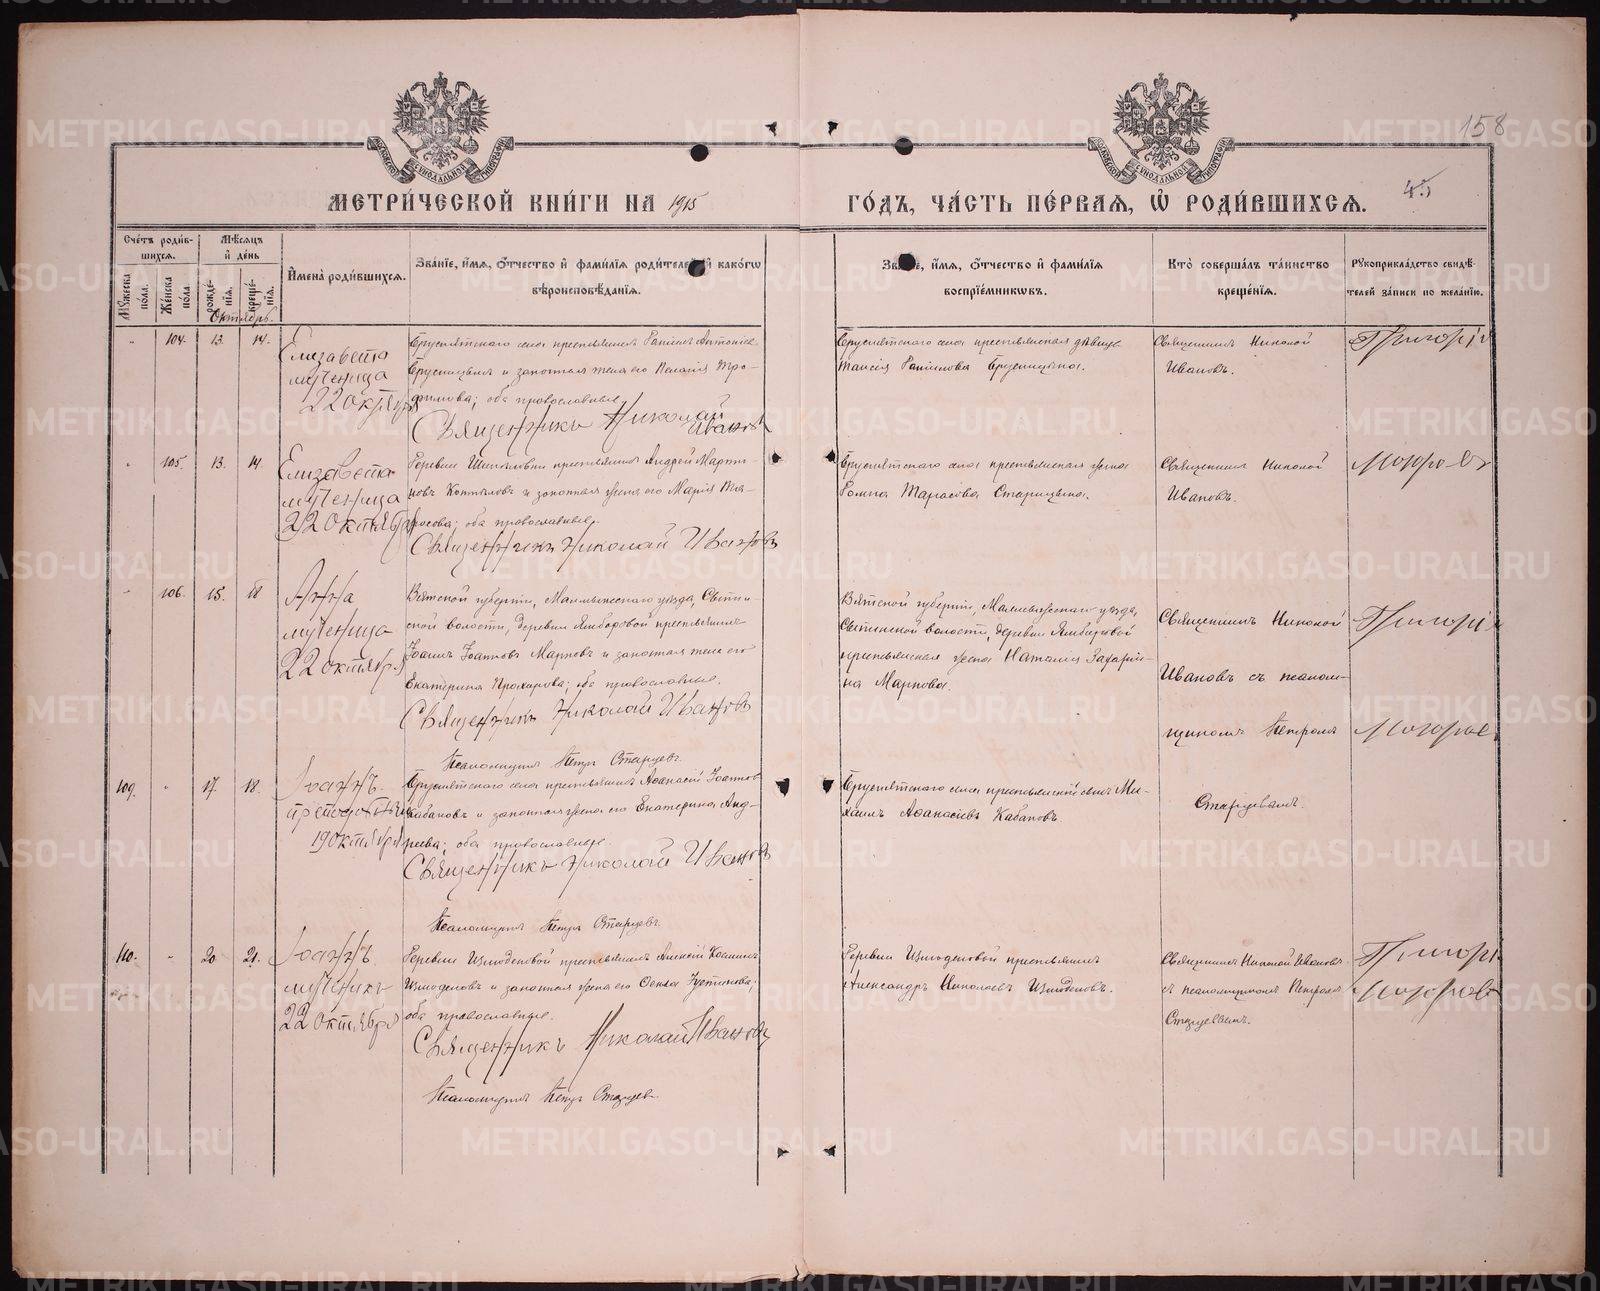 158
45
МЕТРИ́ЧЕСКОЙ КНИ́ГИ НА 1915
ГО́ДЪ, ЧА́СТЬ ПЕ́РВАЯ, Ѡ҆ РОДИ́ВШИХСЯ.
Сче́тъ роди́в-
шихся.
Му́жеска по́ла.
Же́нска по́ла.
Мѣ́сяцъ
и҆ де́нь
рожде́-
нїя.
креще́-
нїя.
И҆мена̀ роди́вшихся.
Зва́нїе, и҆́мя, ѻ҆́тчество и҆ фами́лїя роди́телей и҆ како́гѡ
вѣроисповѣ́данїя.
и҆́мя, ѻ҆́тчество и҆ фами́лїя
воспрїе́мникѡвъ.
Кто̀ соверша́лъ та́инство
креще́нїя.
Рꙋкоприкла́дство свидѣ́-
телей за́писи по жела́нїю.
Октябрь.
104. 13. 14.
Елизавета
мученица
22 октября
Бруснятскаго села крестьянинъ
Брусницынъ и законная жена его Пелагія Тро-
фимова; оба православные.
Священникъ Николай
Ивановъ
Бруснятскаго села крестьянская дѣвица
Таисія Брусницына.
Священникъ Николай
Ивановъ.
Григорій
105. 13. 14.
Елизавета
мученица
22 октября
Деревни крестьянинъ Андрей Марти-
новъ Коптяловъ и законная жена его Марія Та-
расова; оба православные.
Священникъ Николай Ивановъ
Бруснятскаго села крестьянская жена
Тарасова Старицына.
Священникъ Николай
Ивановъ.
106. 15. 18
Анна
мученица
22 октября
Вятской губерніи, Малмыжскаго уѣзда,
ской волости, деревни Ямбаровой крестьянинъ
Іоаннъ Іоанновъ Марковъ и законная жена его
Екатерина Прохорова; оба православные.
Священникъ Николай Ивановъ
Псаломщикъ Петръ Старцевъ.
Вятской губерніи, Малмыжскаго уѣзда,
волости, деревни Ямбаровой
крестьянская жена Наталія Захарі-
на Маркова.
Священникъ Николай
Ивановъ съ псалом-
щикомъ Петромъ
Старцевымъ.
Григорій
109. 17. 18.
Іоаннъ
преподобный
19 октября
Бруснятскаго села крестьянинъ Аѳанасій Іоанновъ
Кабаковъ и законная жена его Екатерина Анд-
реева; оба православные.
Священникъ Николай Ивановъ
Псаломщикъ Петръ Старцевъ.
Бруснятскаго села крестьянскій сынъ Ми-
хаилъ Аѳанасіевъ Кабаковъ.
110. 20. 21.
Іоаннъ
мученикъ
22 октября
Деревни Измоденовой крестьянинъ Алексій
Измоденовъ и законная жена его Іустинова;
оба православные.
Священникъ Николай Ивановъ
Псаломщикъ Петръ Старцевъ.
Деревни Измоденовой крестьянинъ
Александръ Николаевъ Измоденовъ.
Священникъ Николай Ивановъ
съ псаломщикомъ Петромъ
Старцевымъ.
Григорій
METRIKI.GASO-URAL.RU